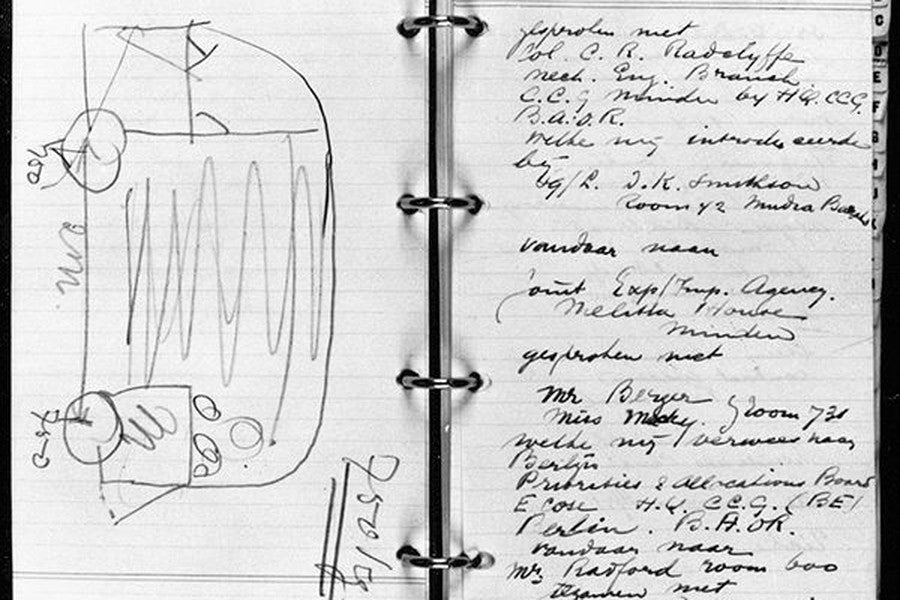 750
750
750 kg
gesproken met
Col. C. R. Radclyffe
Mech. Eng. Branch.
C.C.G Minden by HQ. CCG.
B.A.O.R.
welke mij introduceerde
bij
I.K. Smithson
Room 42 Mudra
vandaar naar
Joint Exp/Imp. Agency.
Melitta House
Minden
gesproken met
Mr Berger
Miss Macky. } room 731
welke mij verwees naar
Berlijn
Priorities & Allocations Board
E cosc H.Q. C.C.G. (BE)
Berlin. B.A.O.R.
vandaar naar
Mr. Radford room 600
tezamen met
C
D
E
F
G
H
J
K